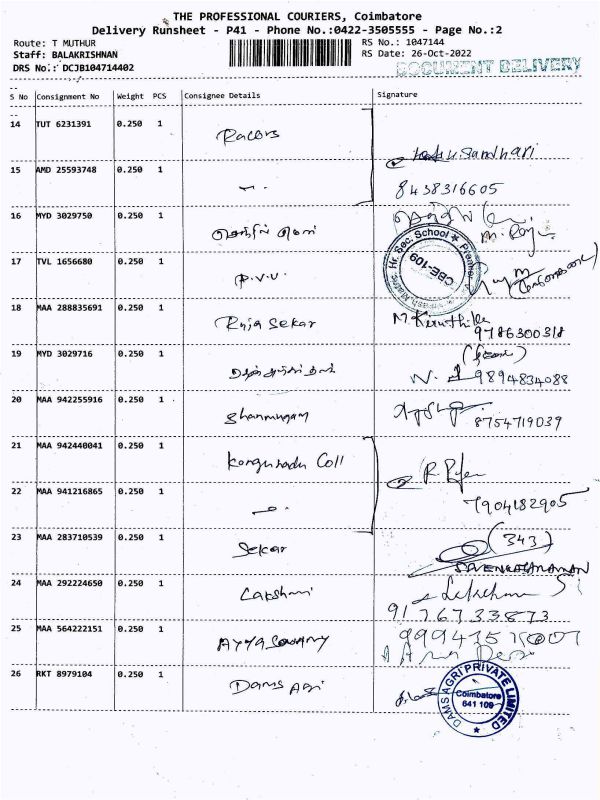 THE PROFESSIONAL COURIERS, Coimbatore
Delivery Runsheet - P41 - Phone No.:0422-3505555 - Page No.:2
Route: T MUTHUR RS No.: 1047144
Staff: BALAKRISHNAN RS Date: 26-Oct-2022
DRS No.: DCJB104714402 DOCUMENT DELIVERY
S No Consignment No Weight PCS Consignee Details Signature
14 TUT 6231391 0.250 1 Racers
15 AMD 25593748 0.250 1 8438316605
16 MYD 3029750 0.250 1
17 TVL 1656680 0.250 1 P.V.V. CBE-109
18 MAA 288835691 0.250 1 Raja Sekar M Kiruthika 9786300318
19 MYD 3029716 0.250 1 9894834088
20 MAA 942255916 0.250 1 Shanmugam 8754719039
21 MAA 942440041 0.250 1 Kongunadu Coll
22 MAA 941216865 0.250 1 7904182905
23 MAA 283710539 0.250 1 Sekar (343)
24 MAA 292224650 0.250 1 Lakshmi 9176733873
25 MAA 564222151 0.250 1 Ayyasamy
26 RKT 8979104 0.250 1 Dams Agri
DAMS AGRI PRIVATE LIMITED
Coimbatore
641 109